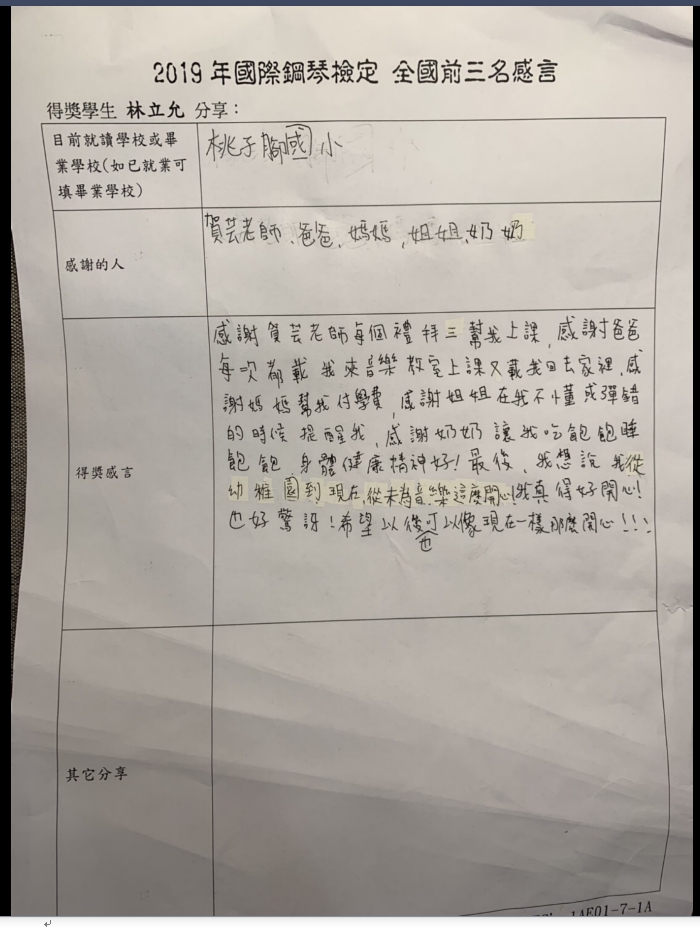 2019年國際鋼琴檢定 全國前三名感言
得獎學生 林立允 分享：
目前就讀學校或畢
業學校(如已就業可
填畢業學校)
桃子腳國小
感謝的人
賀芸老師、爸爸、媽媽、姐姐、奶奶
得獎感言
感謝賀芸老師每個禮拜三幫我上課，感謝爸爸
每次都載我來音樂教室上課又載我回去家裡，感
謝媽媽幫我付學費，感謝姐姐在我不懂或彈錯
的時候提醒我，感謝奶奶讓我吃飽飽睡
飽飽，身體健康精神好！最後，我想說我從
幼稚園到現在，從未為音樂這麼開心！我真得好開心！
也好驚訝！希望以後也可以像現在一樣那麼開心！！！
其它分享
1AE01-7-1A